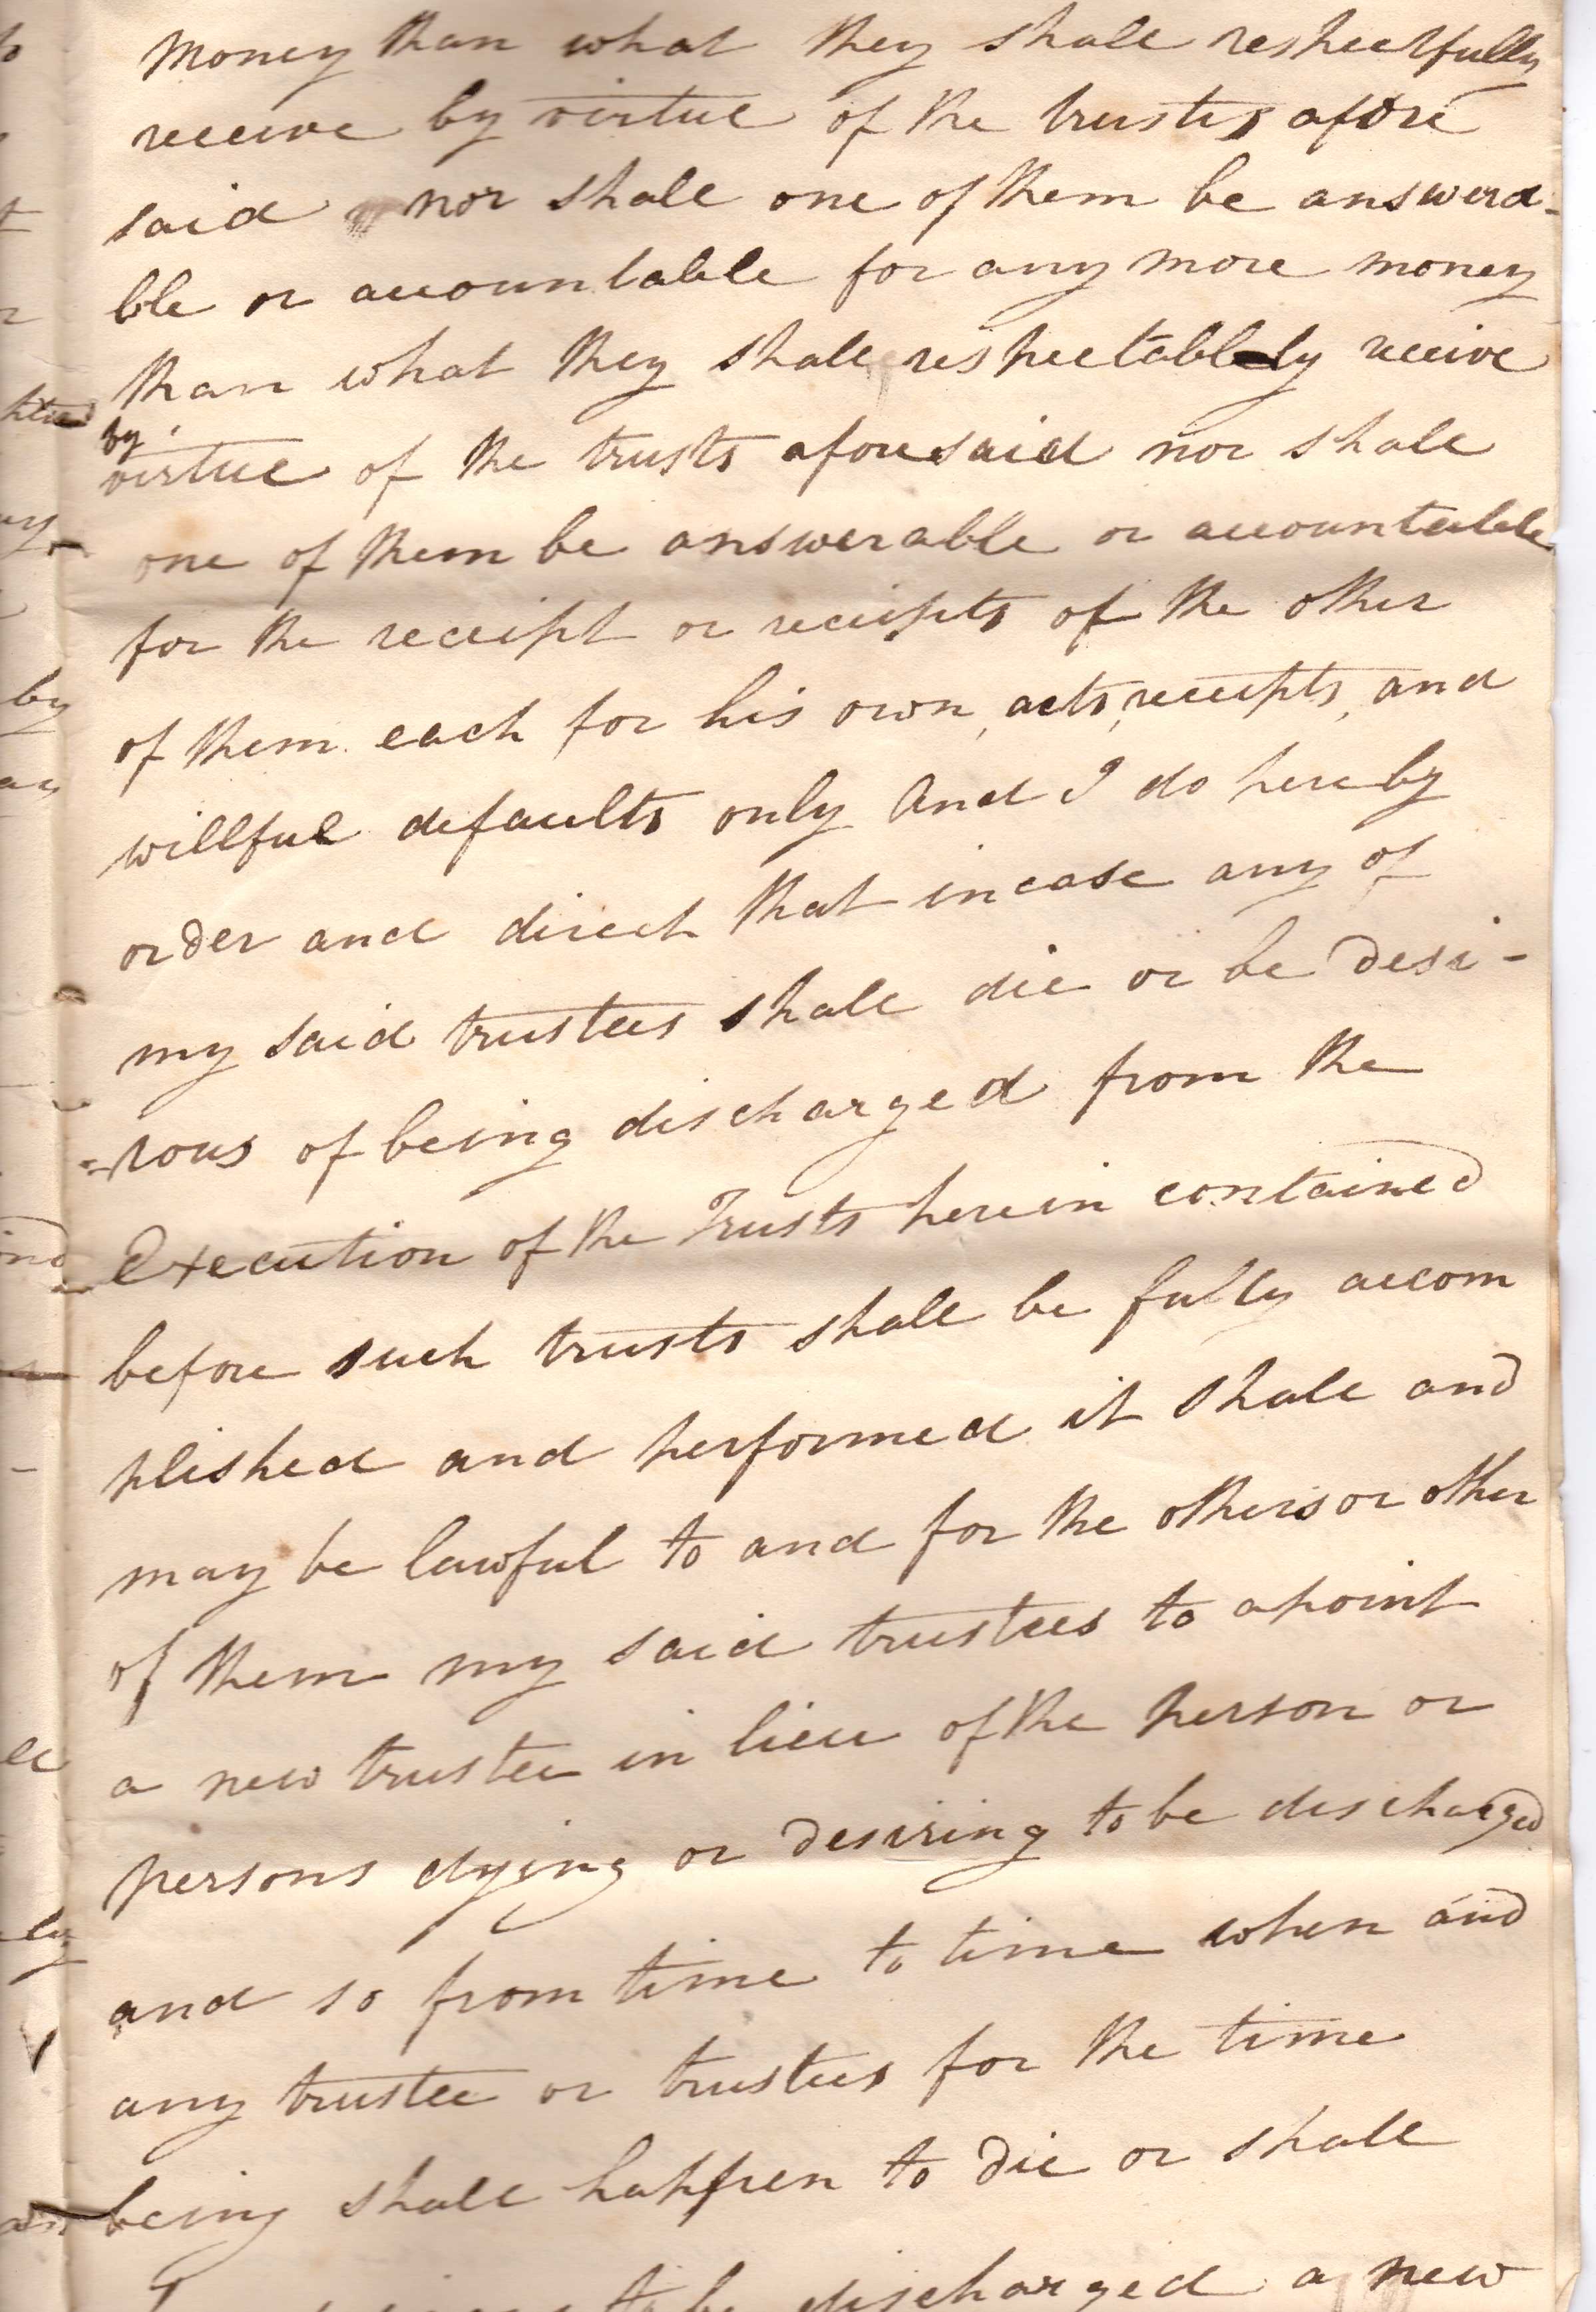 money than what they shall respectfully
receive by virtue of the trusts afore
said nor shall one of them be answera-
ble or accountable for any more money
than what they shall respectablely receive
by
virtue of the trusts aforesaid nor shall
one of them be answerable or accountable
for the receipt or receipts of the other
of them each for his own, acts, receipts, and
willful defaults only And I do hereby
order and direct that incase any of
my said trustees shall die or be desi-
-rous of being discharged from the
Execution of the Trusts herein contained
before such trusts shall be fully accom
plished and performed it shall and
may be lawful to and for the others or other
of them my said trustees to apoint
a new trustee in lieu of the person or
persons dying or desiring to be discharged
and so from time to time when and
any trustee or trustees for the time
being shall happen to die or shall
to be discharged a new